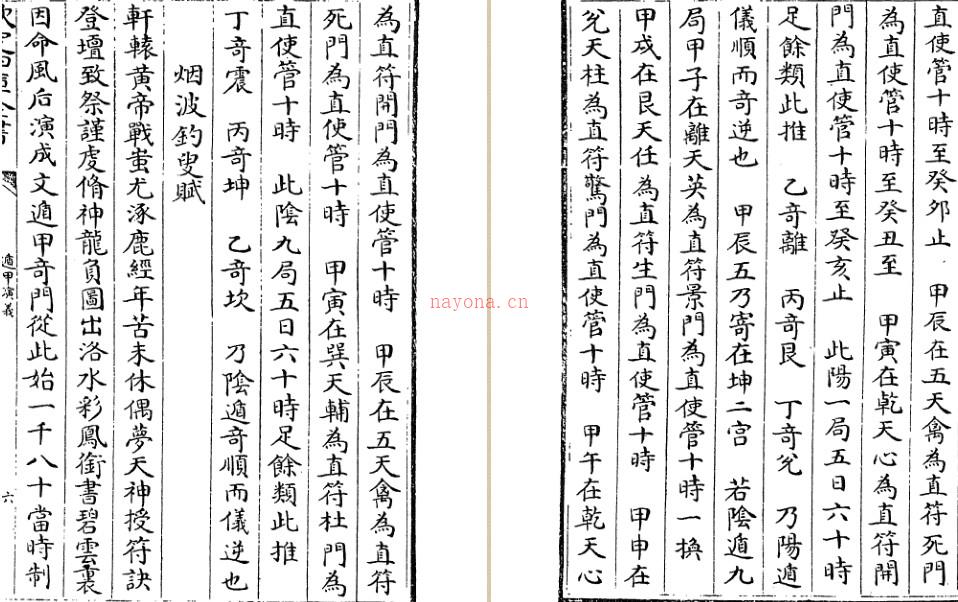 直使管十時至癸卯止　甲辰在五天禽為直符死門
為直使管十時至癸丑至　甲寅在乾天心為直符開
門為直使管十時至癸亥止　此陽一局五日六十時
足餘類此推　乙奇離　丙奇艮　丁奇兊　乃陽遁
儀順而奇逆也　甲辰五乃寄在坤二宫　若陰遁九
局甲子在離天英為直符景門為直使管十時一換
甲戍在艮天任為直符生門為直使管十時　甲申在
兊天柱為直符驚門為直使管十時　甲午在乾天心
為直符開門為直使管十時　甲辰在五天禽為直符
死門為直使管十時　甲寅在巽天輔為直符杜門為
直使管十時　此陰九局五日六十時足餘類此推
丁奇震　丙奇坤　乙奇坎　乃陰遁奇順而儀逆也
烟波釣叟賦
軒轅黄帝戰蚩尤涿鹿經年苦未休偶夢天神授符訣
登壇致祭謹虔脩神龍負圖出洛水彩鳳銜書碧雲裏
因命風后演成文遁甲奇門從此始一千八十當時制
遁甲演義
六
nayona.cn